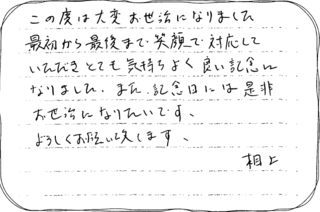 この度は大変お世話になりました
最初から最後まで笑顔で対応して
いただきとても気持ちよく良い記念に
なりました、また、記念日には是非
お世話になりたいです、
よろしくお願い致します、
相上